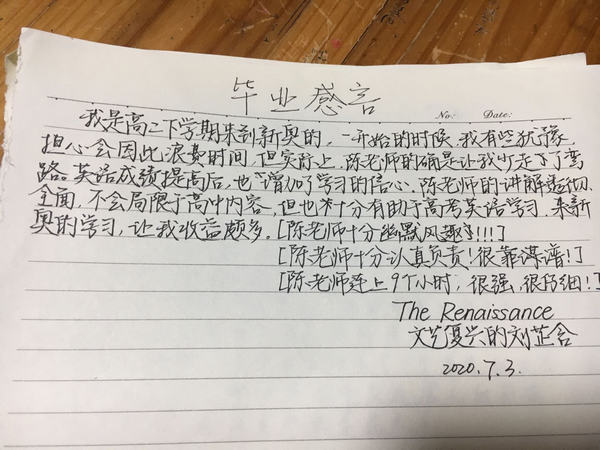 毕业感言
No: Date:
我是高二下学期来到新奥的,一开始的时候,我有些犹豫
担心会因此浪费时间,但实际上,陈老师的确是让我少走了弯
路。英语成绩提高后,也增加了学习的信心,陈老师的讲解透彻、
全面,不会局限于高中内容,但也十分有助于高考英语学习,来新
奥的学习,让我收益颇多。[陈老师十分幽默风趣!!!!]
[陈老师十分认真负责!很靠谱!]
[陈老师连上9个小时,很强,很仔细!]
The Renaissance
文艺复兴的刘芷含
2020.7.3.